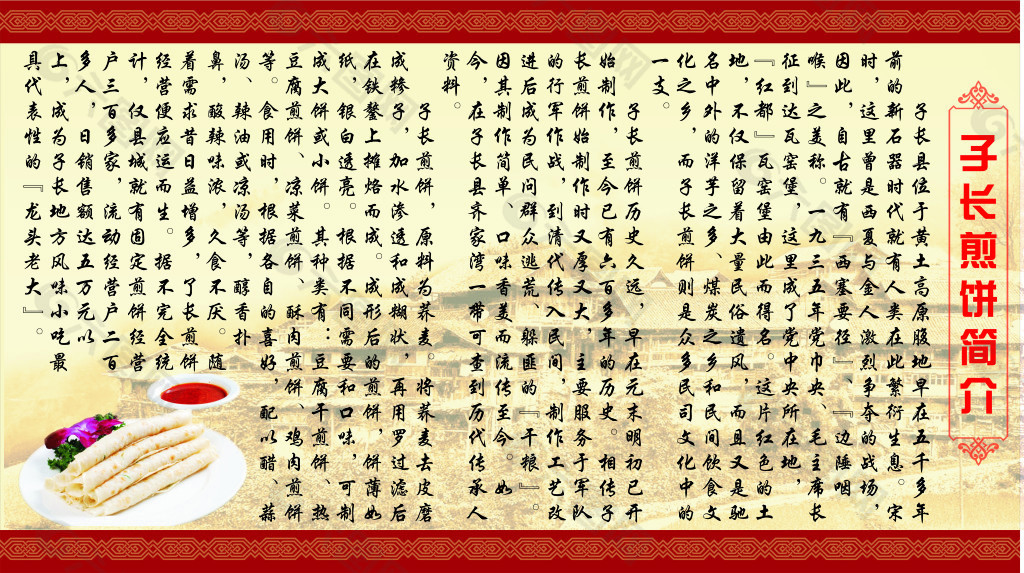 子长煎饼简介
子长县位于黄土高原腹地早在五千多年
前的新石器时代就有人类在此繁衍生息。宋
时，这里曾是西夏与金人激烈争夺的战场，
因此，自古就有『西塞要径』、『边陲咽
喉』之美称。一九三五年党巾央、毛主席长
征到达瓦窑堡，这里成了党中央所在地，
『红都』瓦窑堡由此而得名。这片红色的土
地，不仅保留着大量民俗遗风，而且又是驰
名中外的洋芋之乡、煤炭之乡和民间饮食文
化之乡，而子长煎饼则是众多民司文化中的
一支。
子长煎饼历史久远，早在元末明初已开
始制作，至今已有六百多年的历史。相传子
长煎饼始制作时又厚又大，主要服务于军队
的行军作战，到清代传入民间，制作工艺改
进后成为民问群众逃荒、躲匪的『干粮』。
因其制作简单、口味香美而流传至今。如
今，在子长县齐家湾一带可查到历代传承人
资料。
子长煎饼，原料为荞麦。将荞麦去皮磨
成糁子，加水渗透和成糊状，再用罗过滤后
在铁鏊上摊烙而成。成形后的煎饼，饼薄如
纸，银白透亮。根据不同需要和口味，可制
成大饼或小饼。其种类有：豆腐干煎饼、热
豆腐煎饼、凉菜煎饼、酥肉煎饼、鸡肉煎饼
等。食用时，根据各自的喜好，配以醋、蒜
汤、辣油或凉汤等，醇香扑
鼻，酸辣味浓，久食不厌。随
着需求昔日益增多，了长煎饼
经营便应运而生。据不完全统
计，仅县城就有固定煎饼经营
户三百多家，流动经营户二百
多人，日销售额达五万元以
上，成为子长地方风味小吃最
具代表性的『龙头老大』。